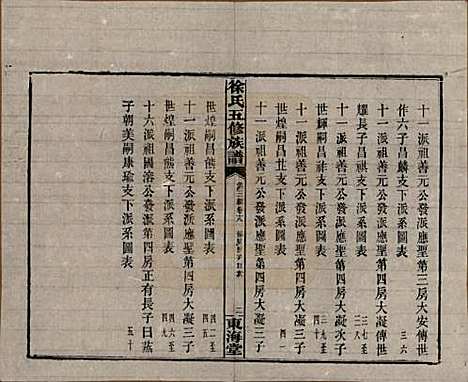 十一派祖善元公發派應聖第三房大安傳世
作六子昌麟支下派系圖表 三六
十一派祖善元公發派應聖第四房大凝傳世
燿長子昌祺支下派系圖表 三八
十一派祖善元公發派應聖第四房大凝次子
世輝嗣子昌祚支下派系圖表 三九至四十
十一派祖善元公發派應聖第四房大凝三子
世煌嗣昌世支下派系圖表 四一
徐氏五修族譜
東海堂
十一派祖善元公發派應聖第四房大凝三子
世煌嗣昌熊支下派系圖表 四二至四五
十一派祖善元公發派應聖第四房大凝三子
世煌嗣昌熊支下派系圖表 四六至四九
十六派祖國溶公發派第四房正有長子日蒸
子朝美嗣康瑜支下派系圖表 五十